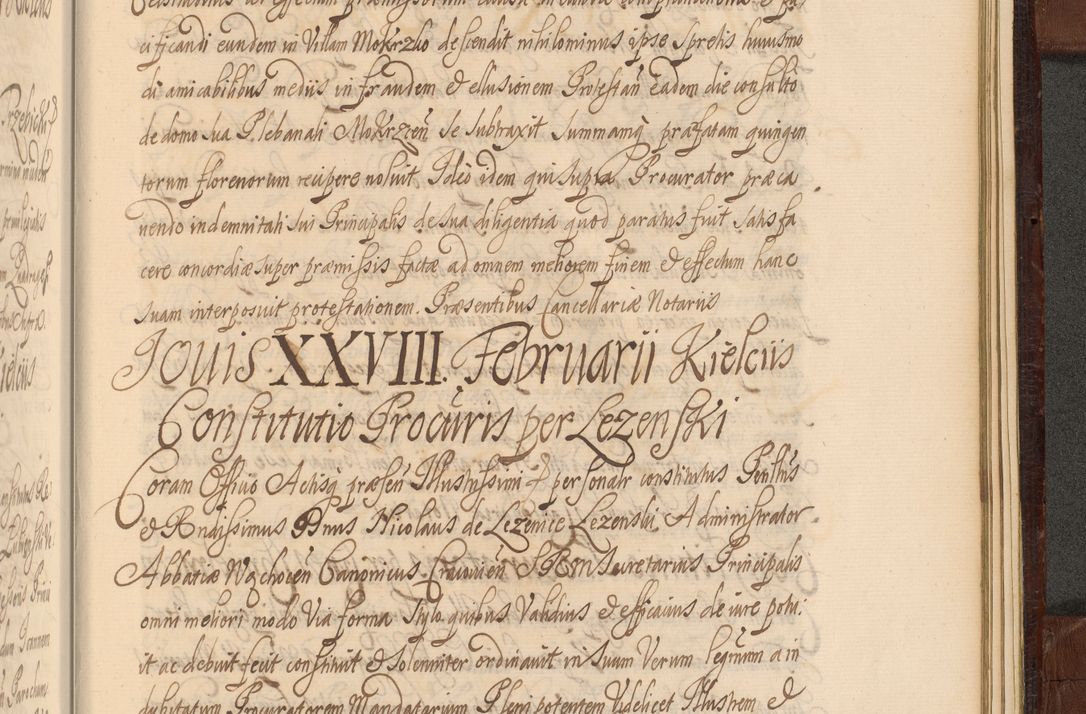 cificandi eundem in Villam Mokrzko descendit nihilominus ipse spretis huiusmo
di amicabilibus mediis in fraudem & ellusionem Protestań eadem die consulto
de domo sua Plebanali Mokrzceń se subtraxit summamq præfatam quingen
torum florenorum recipere noluit Ideo idem qui supra Procurator præca
vendo indemnitati sui Principalis de sua diligentia quod paratus fuit satisfa
cere concordiæ super præmissis factæ ad omnem meliorem finem & effectum hanc
suam interposuit protestationem. Præsentibus Cancellariæ Notariis
Iouis XXVIII. Februarii Kielciis
Constitutio Procuris per Lezenski
Coram Officio Actisq præseń Illustrissimi & personalr constitutus
& Rndissimus Dnus Nicolaus de Lezenice Lezenski, Administrator
Abbatiæ Wąchoceń Canonicus Cracovień Secretarius Principalis
omni meliori modo Via forma Stylo quibus Validius & efficacius de iure potu
it ac debuit fecit constituit & solenniter ordinavit in suum Verum legitimum a in
dubitatum Procuratorem Mandatarium Plenipotentem Videlicet Illustrem &